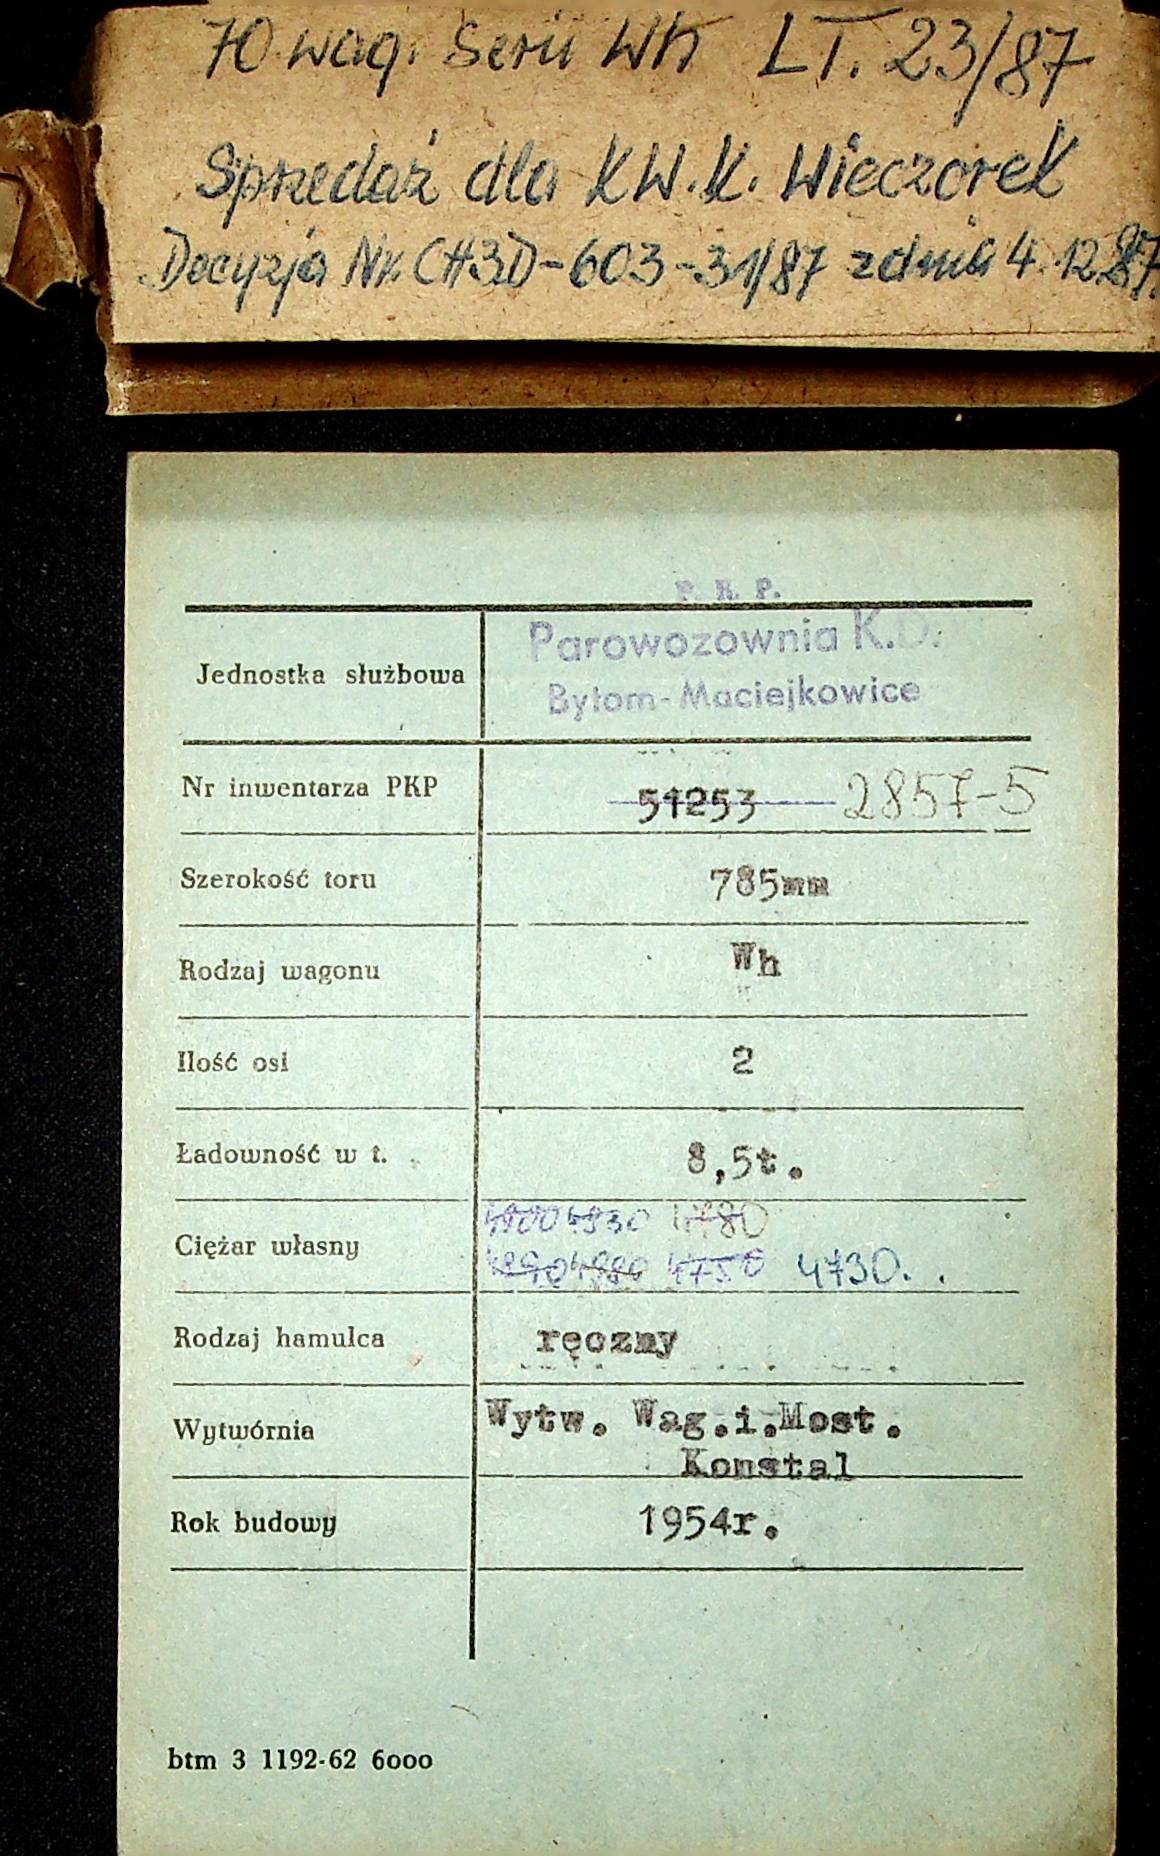 70 wag. Serii Wh LT. 23/87
Sprzedaż dla KW.K. Wieczorek
Decyzja Nr. CH3D-603-31/87 z dnia 4.12.87.
P. K. P.
Parowozownia K.D.
Bytom-Maciejkowice
Jednostka służbowa
Nr inwentarza PKP 51253 2857-5
Szerokość toru 785mm
Rodzaj wagonu Wh
Ilość osi 2
Ładowność w t. 8,5t.
4900 4930 4780
Ciężar własny 4980 4750 4730.
Rodzaj hamulca ręczny
Wytwórnia Wytw. Wag.i.Most.
Konstal
Rok budowy 1954r.
btm 3 1192-62 6000